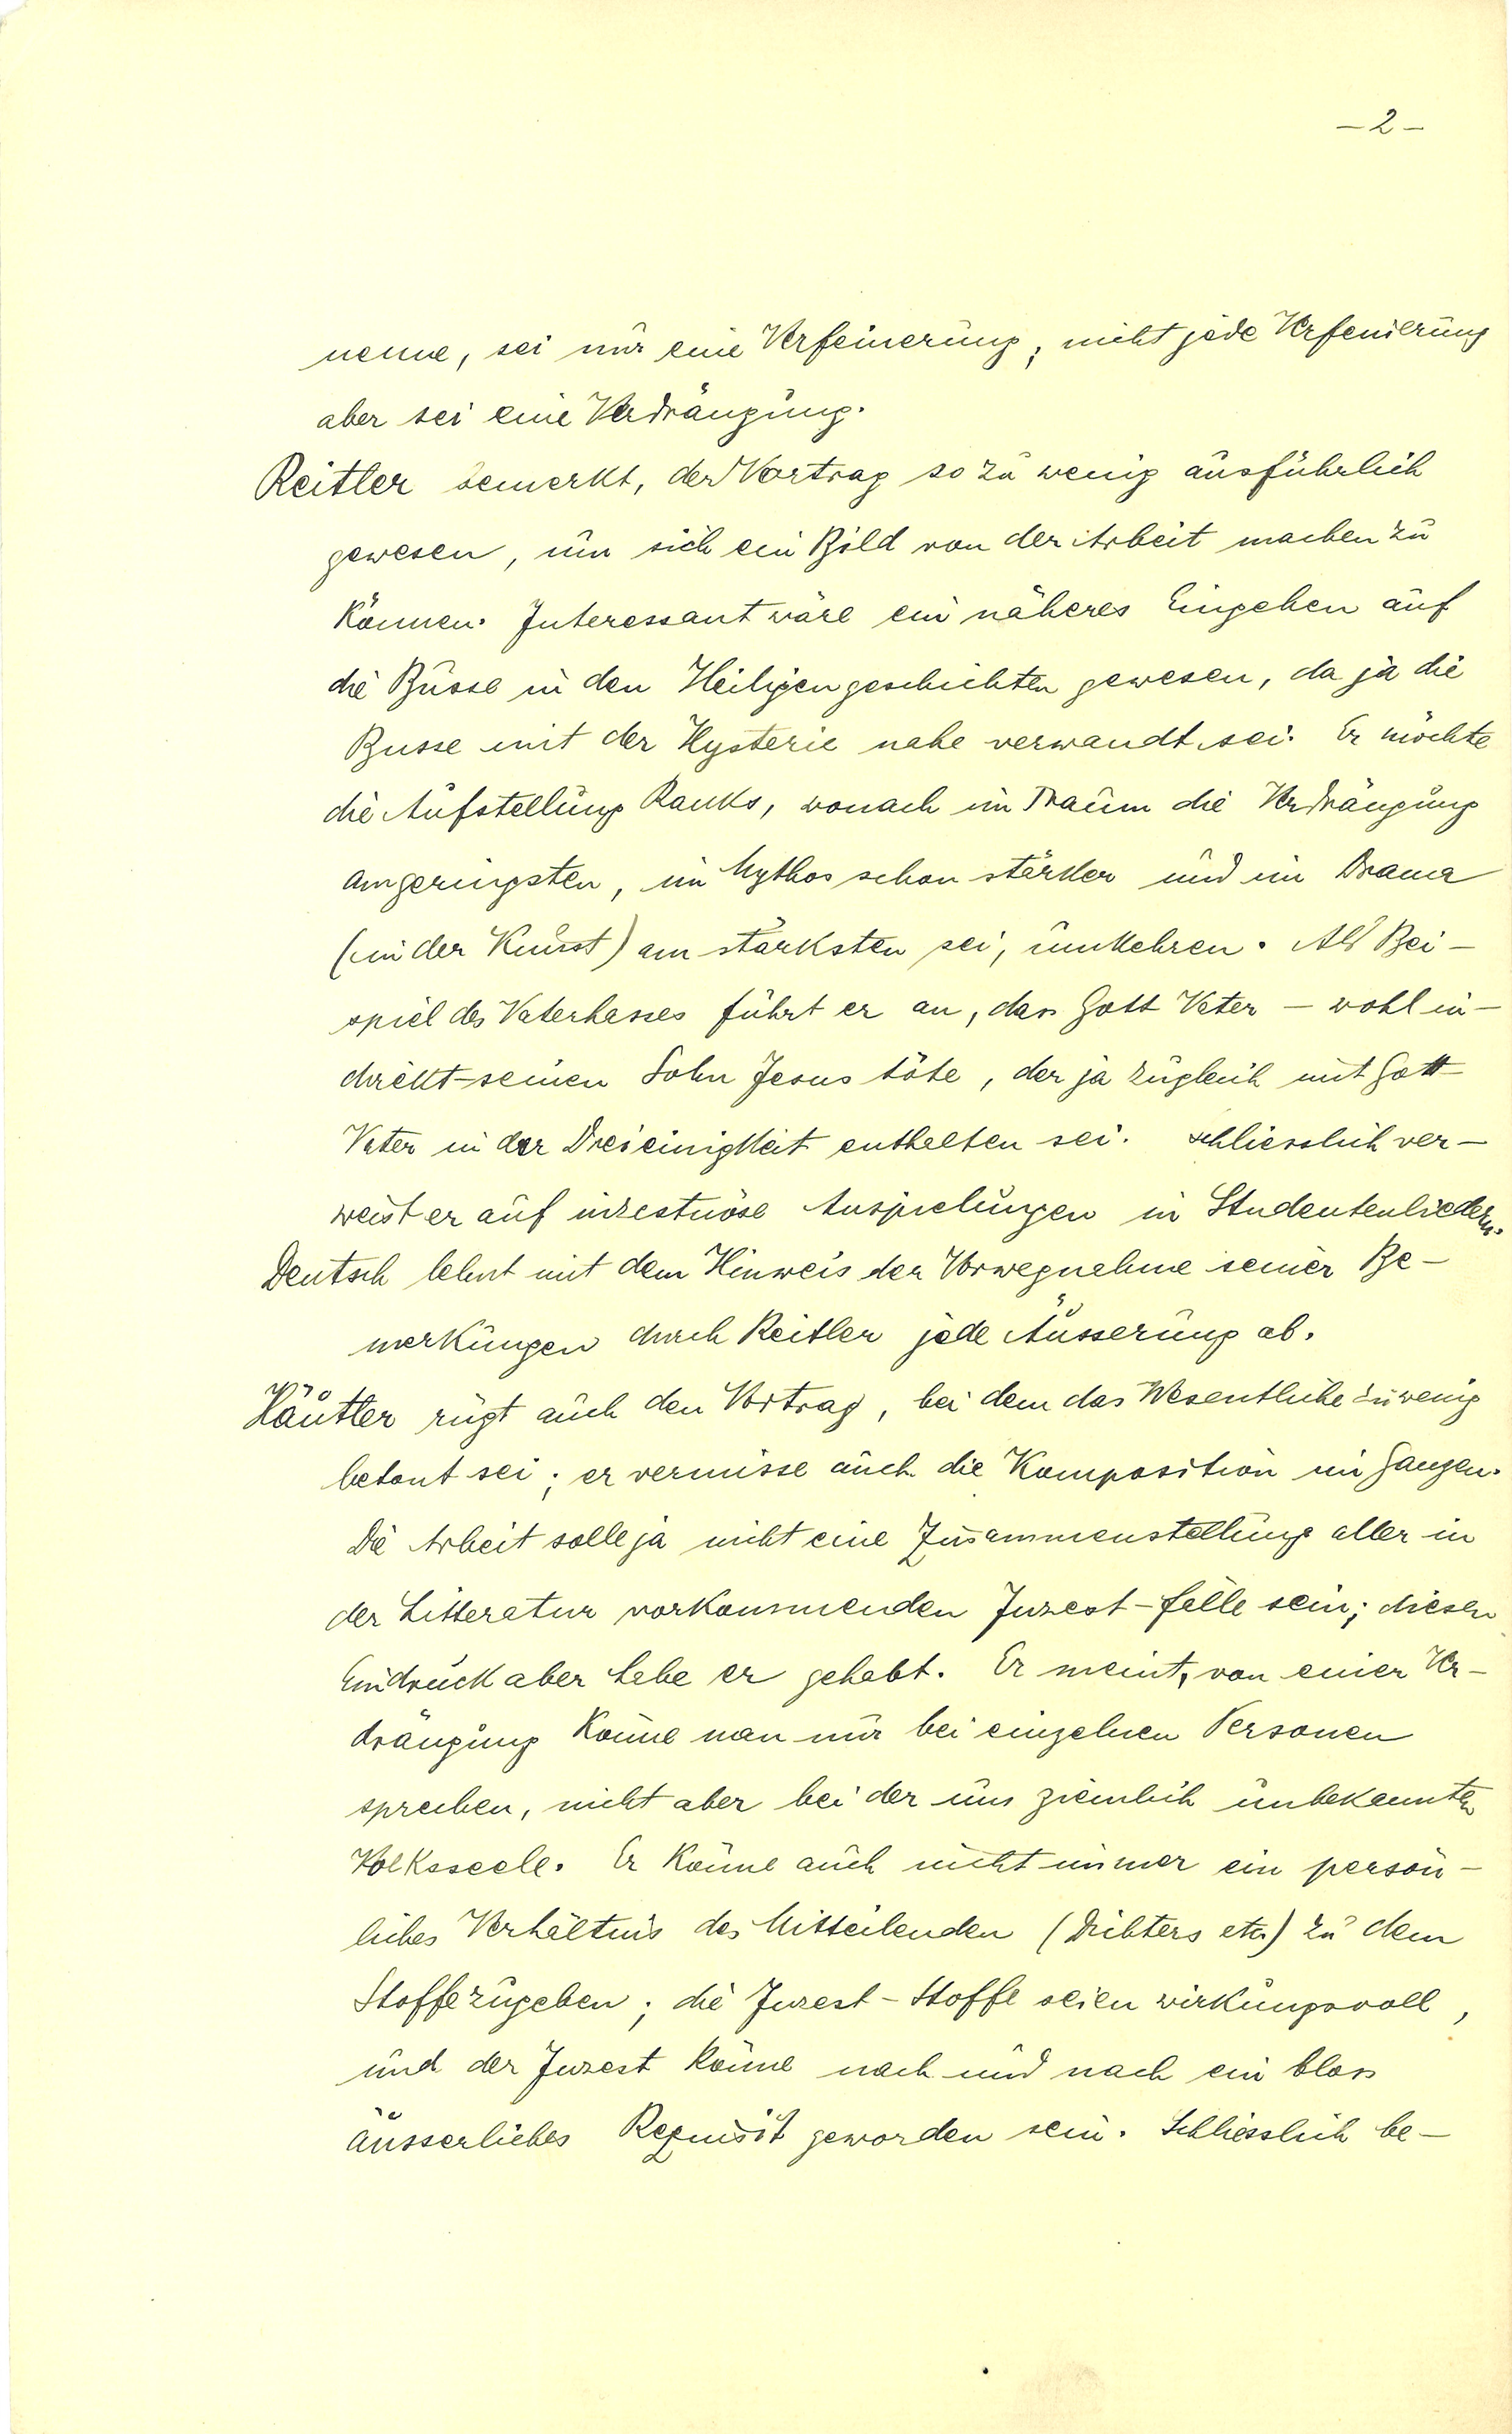 – 2 –
nenne, sei nur eine Verfeinerung; nicht jede Verfeinerung
aber sei eine Verdrängung.
Reitler bemerkt, der Vortrag so zu wenig ausführlich
gewesen, um sich ein Bild von der Arbeit machen zu
können. Interessant wäre ein näheres Eingehen auf
die Busse in den Heiligengeschichten gewesen, da ja die
Busse mit der Hysterie nahe verwandt sei. Er möchte
die Aufstellung Ranks, wonach im Traum die Verdrängung
am geringsten, im Mythos schon stärker und im Drama
(in der Kunst) am stärksten sei, umkehren. Als Bei-
spiel des Vaterhasses führt er an, dass Gott Vater – wohl in-
direkt – seinen Sohn Jesus töte, der ja zugleich mit Gott
Vater in der Dreieinigkeit enthalten sei. Schliesslich ver-
weist er auf inzestuöse Anspielungen in Studentenliedern.
Deutsch lehnt mit dem Hinweis der Vorwegnahme seiner Be-
merkungen durch Reitler jede Äusserung ab.
Häutler rügt auch den Vortrag, bei dem das Wesentliche zu wenig
betont sei; er vermisse auch die Komposition im Ganzen.
Die Arbeit solle ja nicht eine Zusammenstellung aller in
der Litteratur vorkommenden Inzest-fälle sein; diesen
Eindruck aber habe er gehabt. Er meint, von einer Ver-
drängung könne man nur bei einzelnen Personen
sprechen, nicht aber bei der uns ziemlich unbekannten
Volksseele. Er könne auch nicht immer ein persön-
liches Verhältnis des Mitteilenden (Dichters etc.) zu dem
Stoffe zugeben; die Inzest-Stoffe seien wirkungsvoll,
und der Inzest könne nach und nach ein bloss
äusserliches Requisit geworden sein. Schliesslich be-